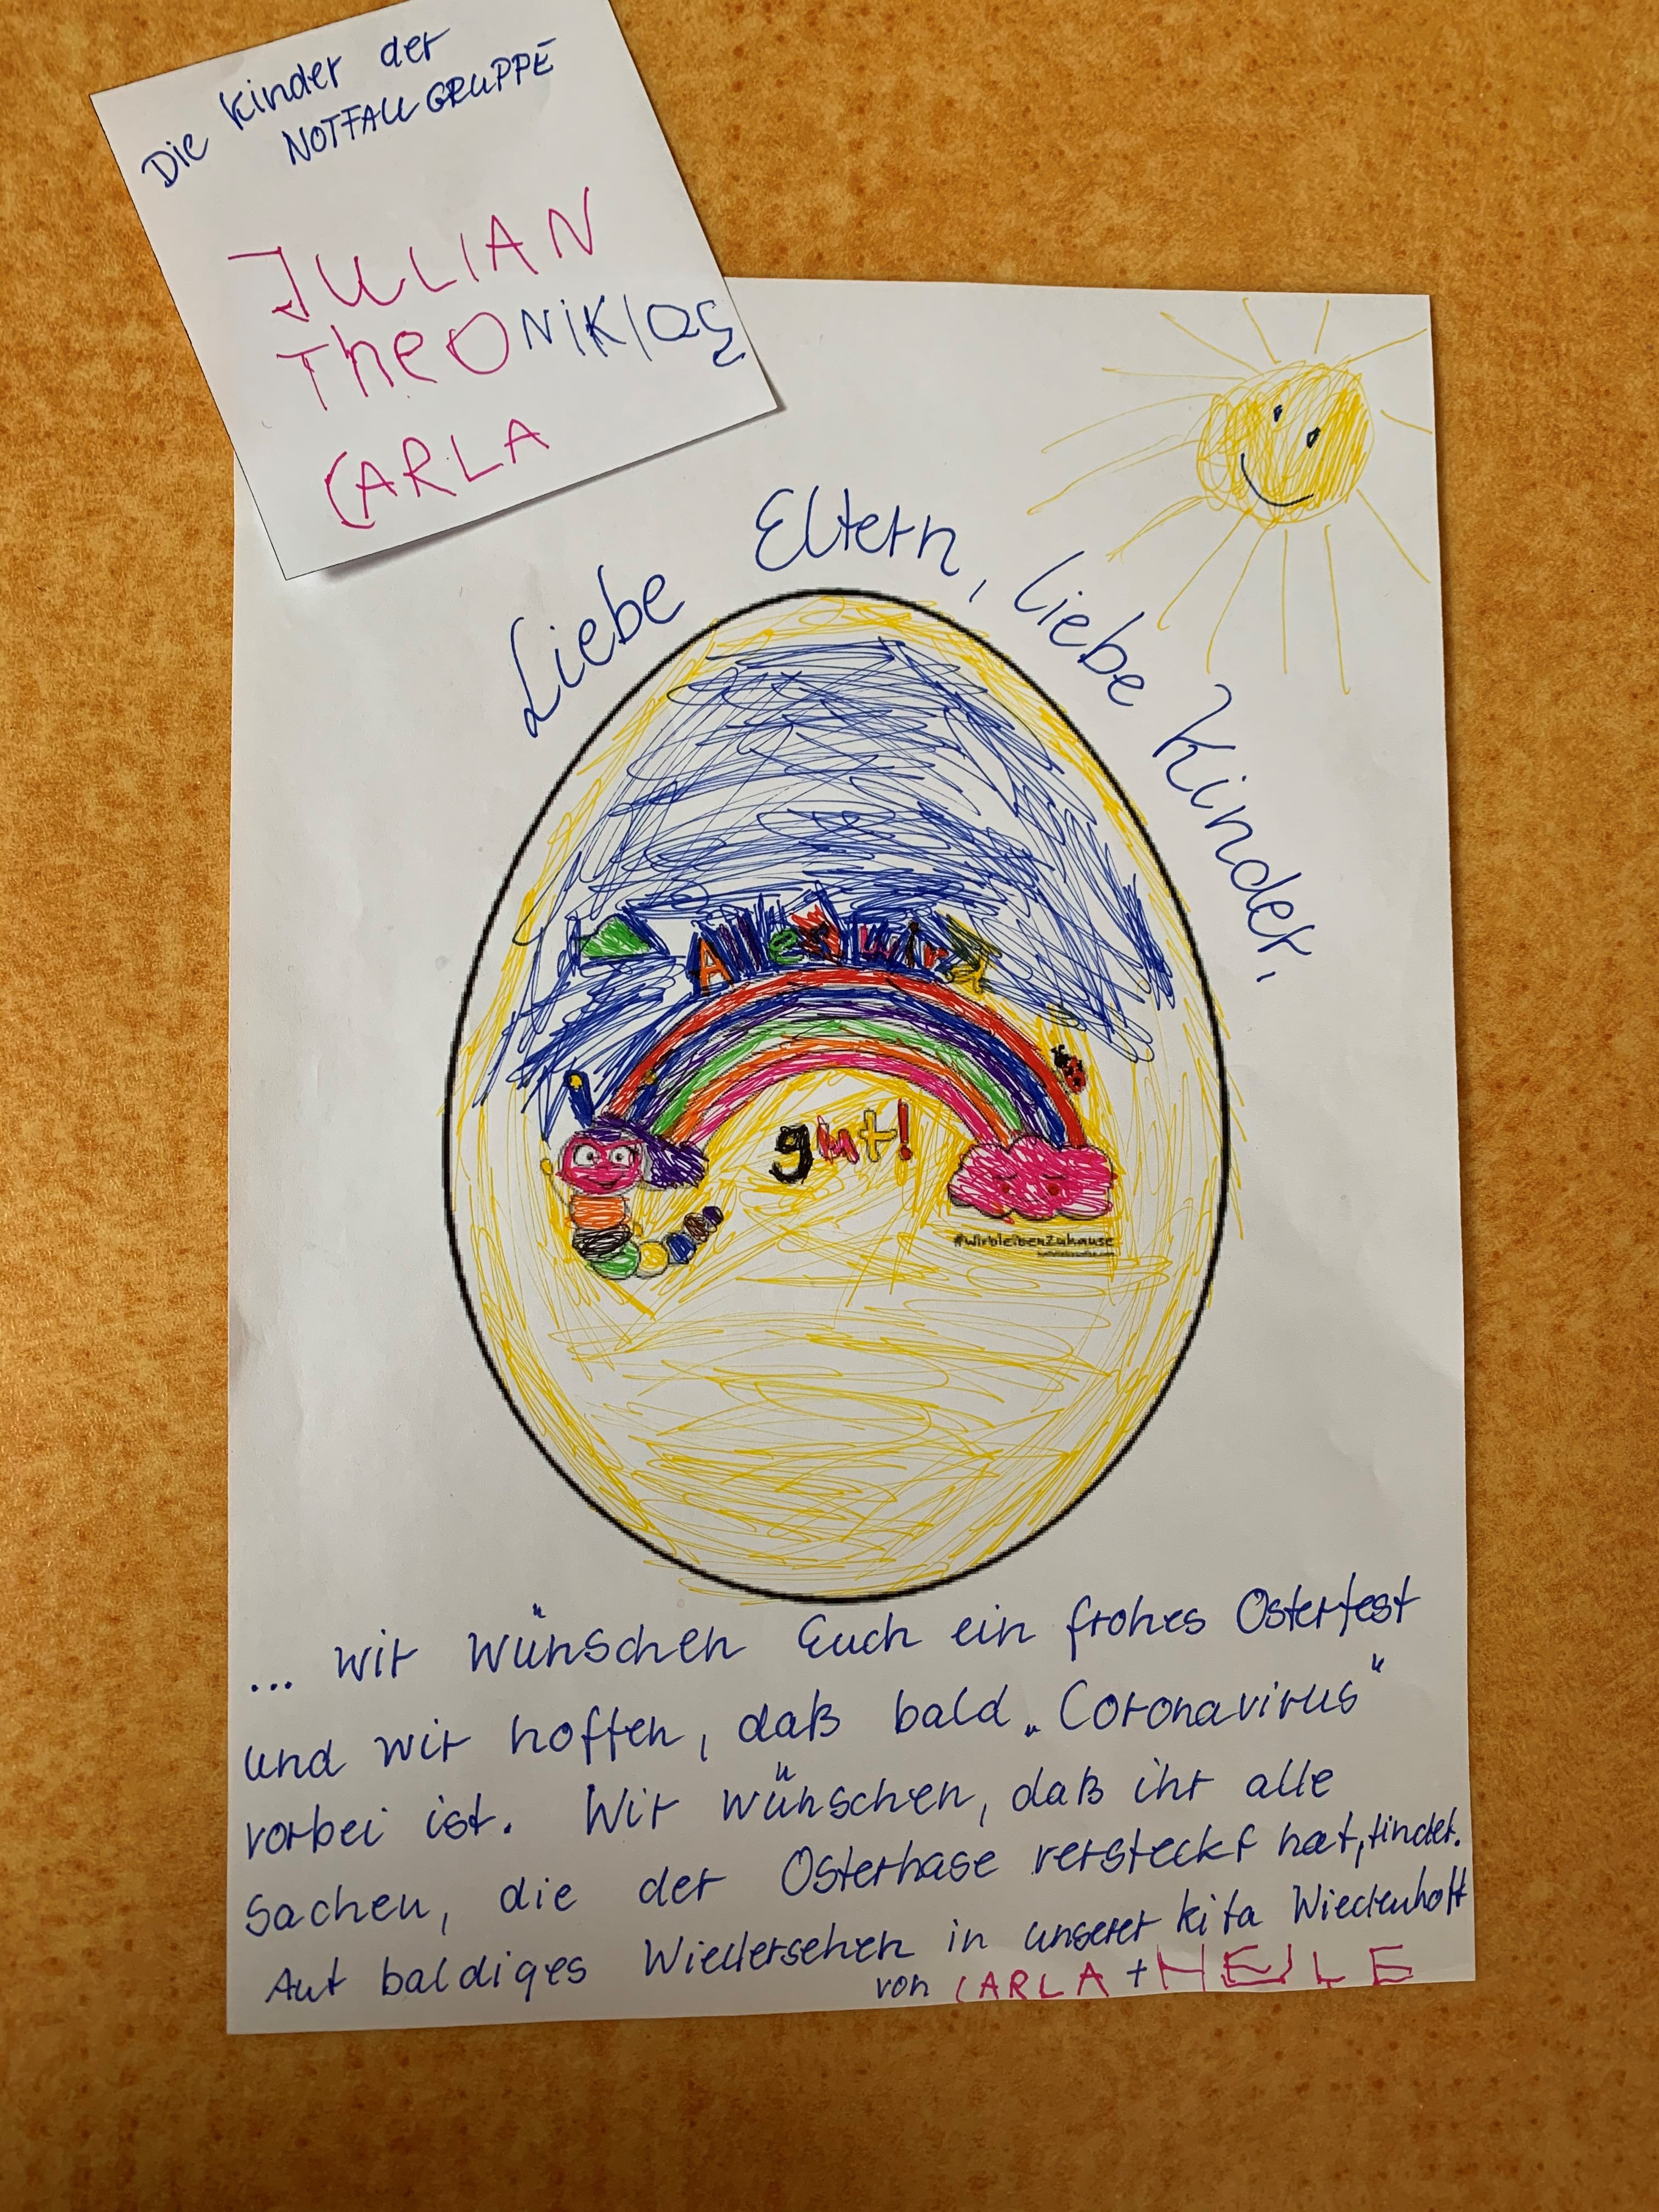 Die Kinder der
NOTFALLGRUPPE
JULIAN
TheO NiKlas
CARLA
Liebe Eltern, liebe Kinder,
Alles wird
gut!
#wirbleibenZuhause
... wir wünschen Euch ein frohes Osterfest
und wir hoffen, daß bald „Coronavirus"
vorbei ist. Wir wünschen, daß ihr alle
Sachen, die der Osterhase versteckt hat, findet.
Auf baldiges Wiedersehen in unserer Kita Wiedenhoff
von CARLA + HEILE